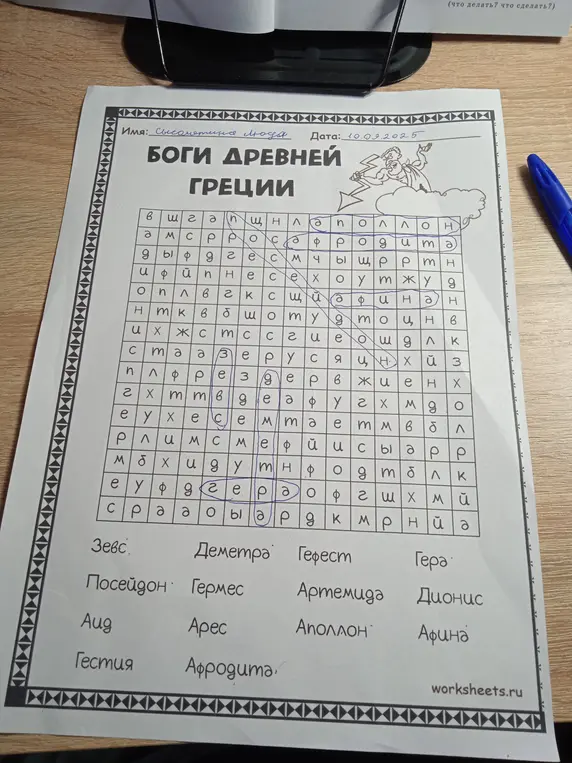 (что делать? что сделать?)
Имя: Дата: 10.09.2025
БОГИ ДРЕВНЕЙ
ГРЕЦИИ
в ш г а п щ н л а п о л л о н
а м с р р о с а ф р о д и т а
д ы ф д г е с м ч ы щ р р т н
и ф й п н е с е х о у т ж у д
о п л в г к с щ й а ф и н а н
н т к в б ш о т у д т о ц н в
и х ж с т с с г и е о ш д л к
с т а а з е р у с я ц н х й з
п л ф р е з д е р в ж и е н х
г х т т в д е а ф у г х м д о
е у х е с е м т а е т м в б л
р л и м с м е ф й и с ы а р р
м б х и д у т н ф о д т б л к
е у ф д г е р а о ф г ш х м й
с р а а о ы а р д к м р н й а
Зевс Деметра Гефест Гера
Посейдон Гермес Артемида Дионис
Аид Арес Аполлон Афина
Гестия Афродита
worksheets.ru